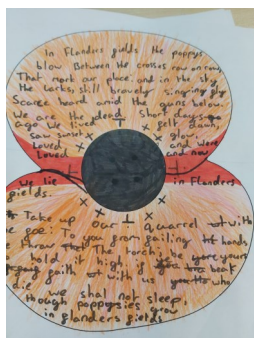 In Flanders gields the poppys
blow Between the crosses row on row,
That mark our place: and in the sky
the larks, still bravely singing gly
Scarce heard amid the guns below.
We are the dead short days
ago We lived gelt dawn,
saw sunset glow,
Loved, and were
Loved and now
we lie in Flanders
gields.
Take up our quarrel with
the goe: To you grom gailing hands
we throw The torch; be yours
to hold it high ig
gaith with us who
die we shal not sleep,
though poppysies grow
in glanders gields